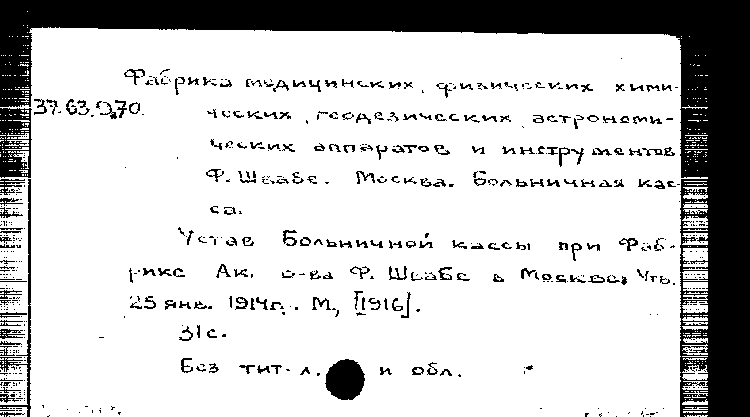 Фабрика медицинских, физических, хими-
37.63.9.70. ческих, геодезических, астрономи-
ческих аппаратов и инструментов
Ф. Швабе. Москва. Больничная кас-
са.
Устав Больничной кассы при Фаб-
рике Ак. о-ва Ф. Швабе в Москве. Утв.
25 янв. 1914г. М., [1916].
31с.
Без тит. л. и обл.